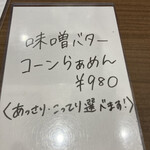 味噌バター
コーンらぁめん
¥980
〈あっさり・こってり選べます!〉